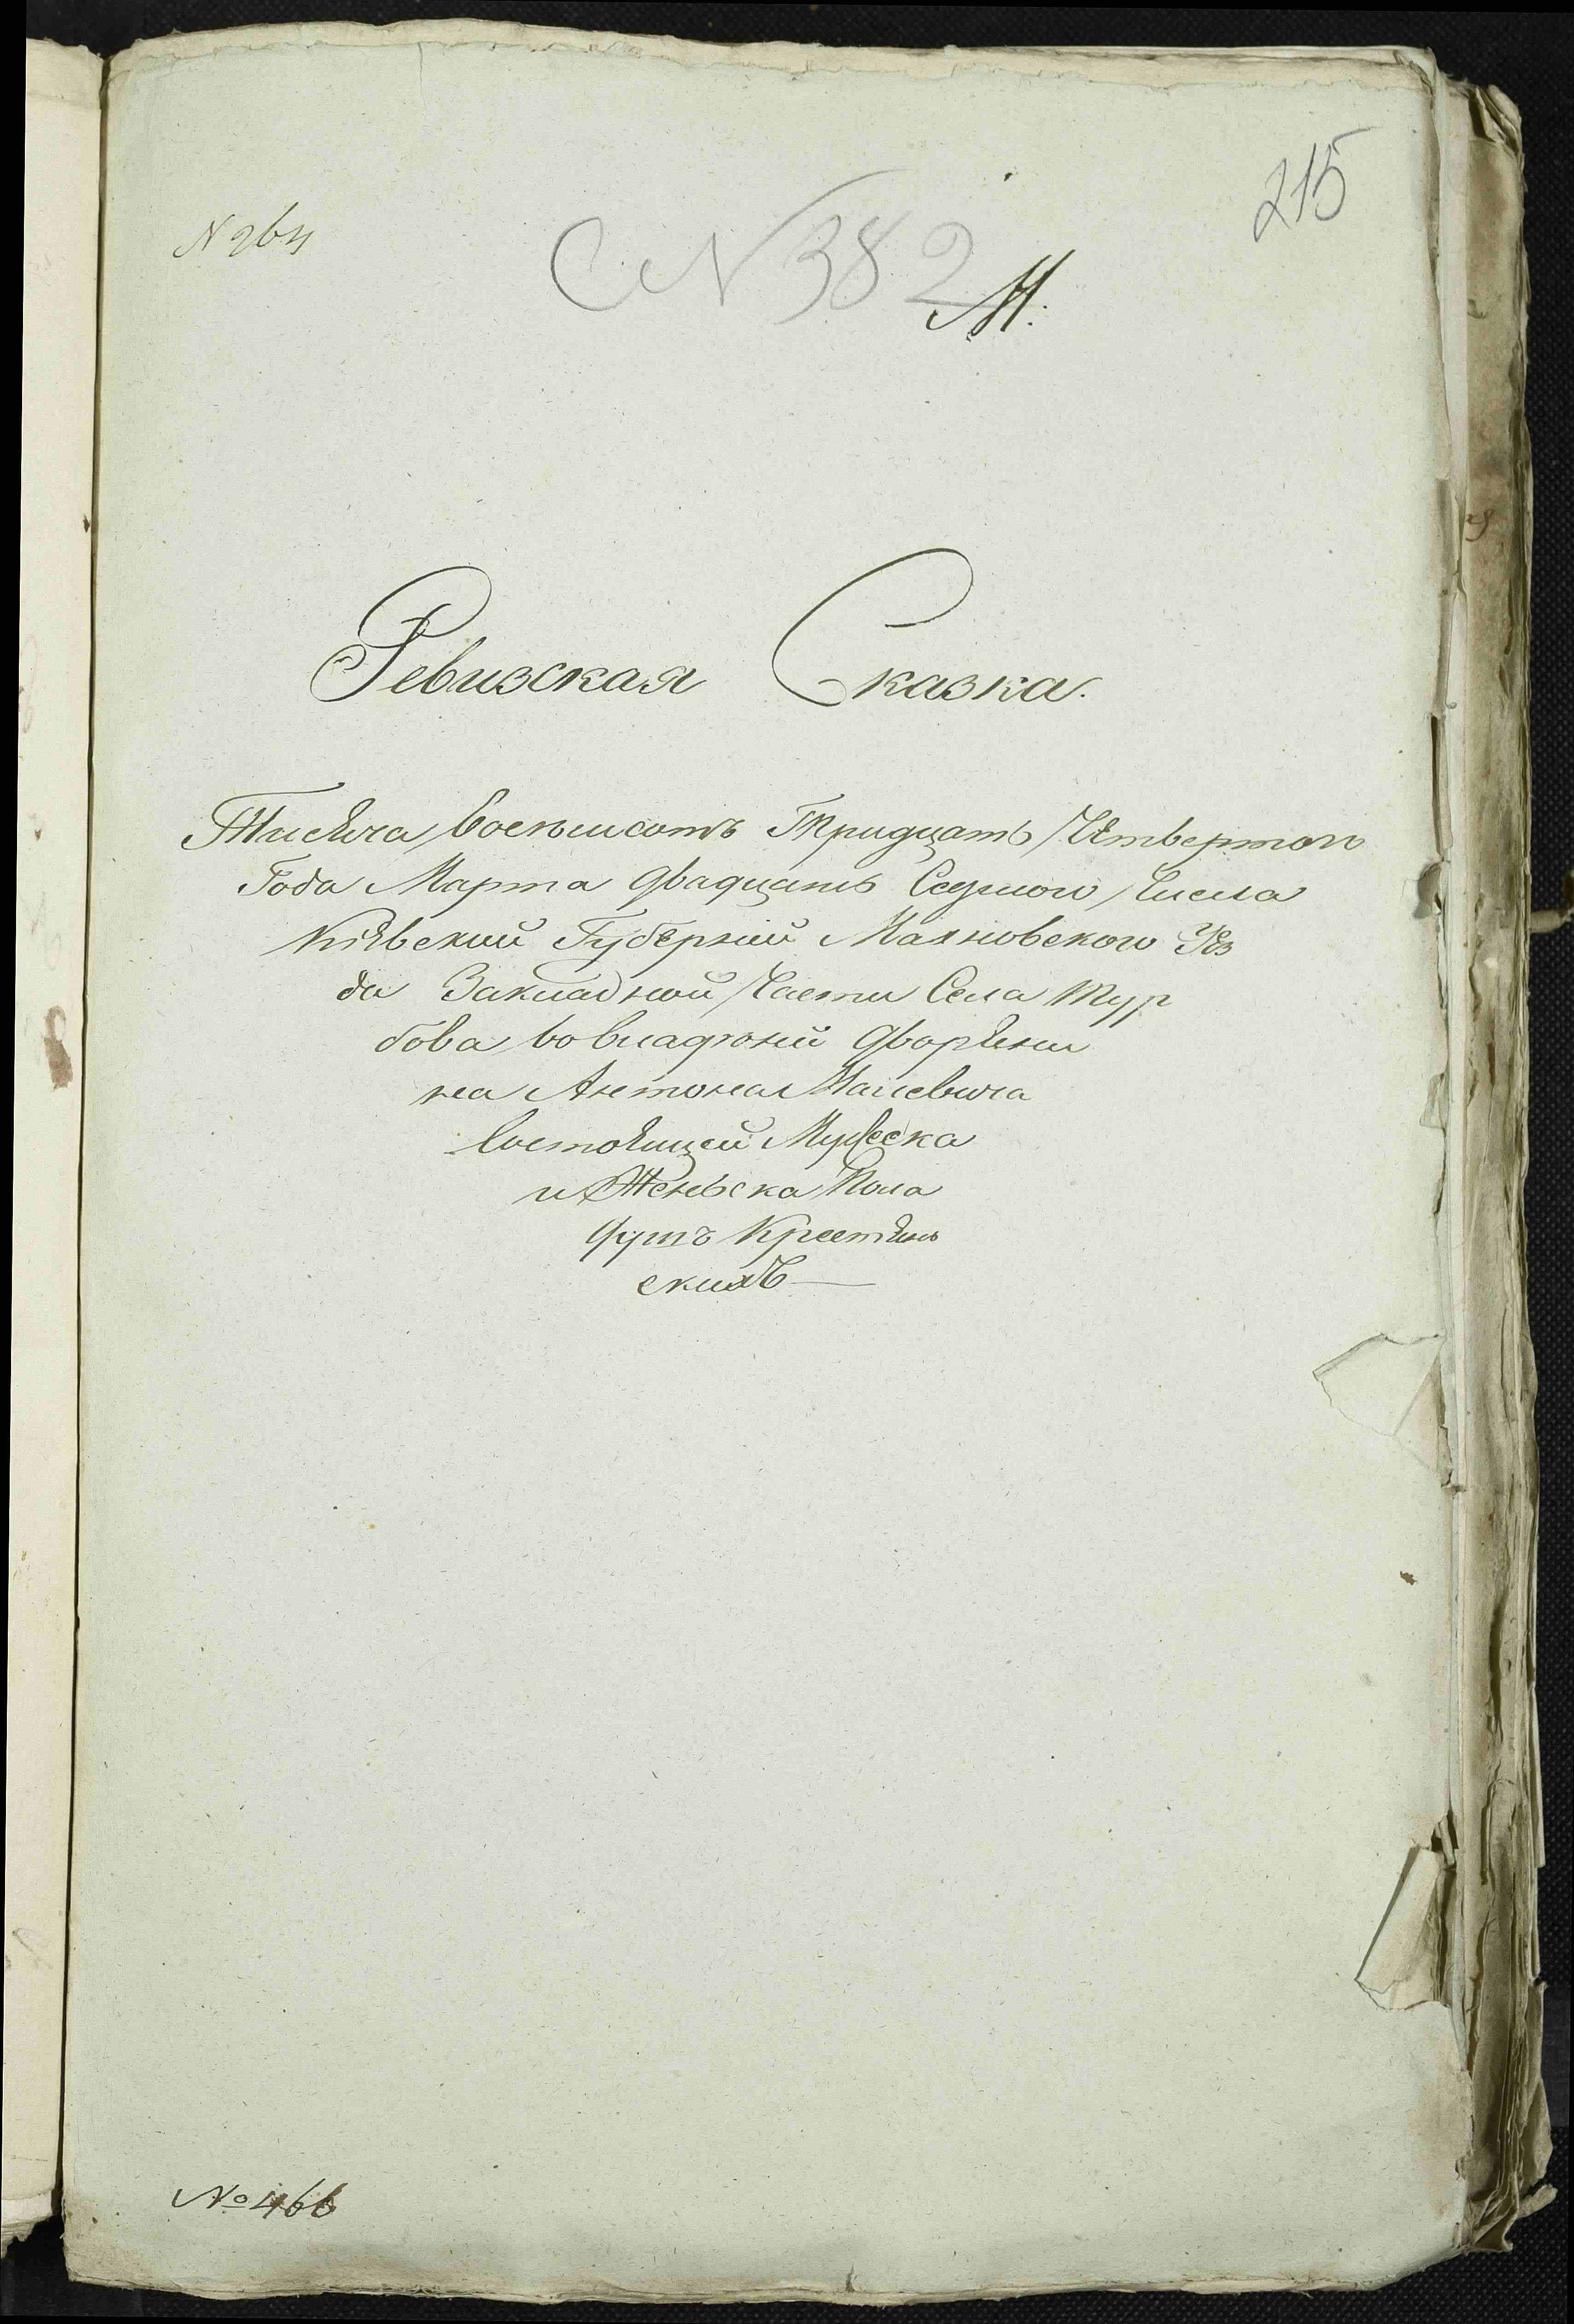 215
N 264
N 382
М.
Ревизская Сказка.
Тисяча восемьсотъ Тридцать Четвертого
Года Марта двадцать Седмого Числа
Кіевский Губернии Махновского Уез
да Закладной Части Села Тур
бова во владѣнии Дворяни
на Антона
Состоящей Мужеска
и Женьска Пола
душъ Крестянь
скихъ
№ 466